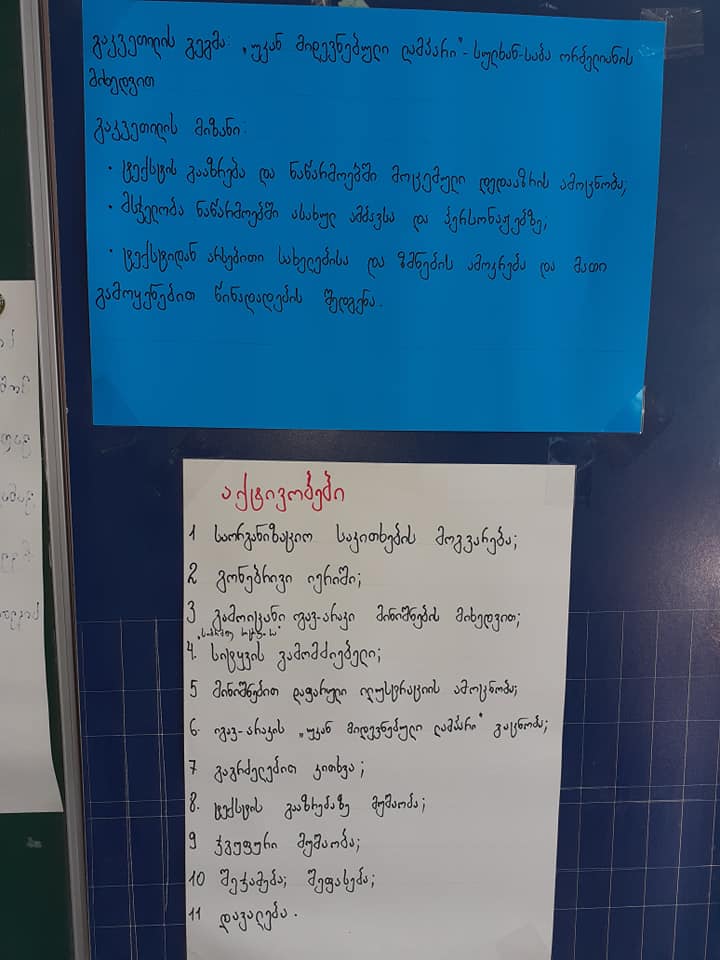 გაკვეთილის გეგმა: „უკან მიდევნებული ლამპარი"- სულხან-საბა ორბელიანის
მიხედვით
გაკვეთილის მიზანი.
· ტექსტის გააზრება და ნაწარმოებში მოცემული დედააზრის ამოცნობა;
· მსჯელობა ნაწარმოებში ასახულ ამბავსა და პერსონაჟებზე;
· ტექსტიდან არსებითი სახელებისა და ზმნების ამოკრება და მათი
გამოყენებით წინადადების შედგენა.
აქტივობები
1 საორგანიზაციო საკითხების მოგვარება;
2 გონებრივი იერიში;
3 გამოიცანი იგავ-არაკი მინიშნების მიხედვით;
4. სიტყვის გამომძიებელი;
5 მინიშნებით დაფარული ილუსტრაციის ამოცნობა;
6. იგავ-არაკის „უკან მიდევნებული ლამპარი" გაცნობა;
7 გაგრძელებით კითხვა;
8. ტექსტის გააზრებაზე მუშაობა;
9 ჯგუფური მუშაობა;
10 შეჯამება; შეფასება;
11 დავალება.